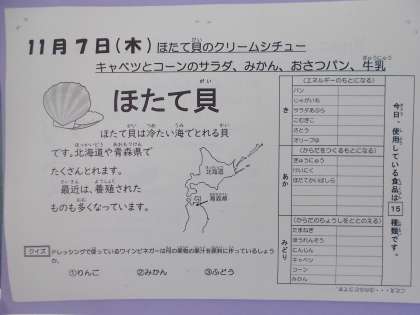 11月7日(木) ほたて貝のクリームシチュー
キャベツとコーンのサラダ、みかん、おさつパン、牛乳
ほたて貝
ほたて貝は冷たい海でとれる貝
です。北海道や青森県で
たくさんとれます。
最近は、養殖された
ものも多くなっています。
北海道
青森県
クイズ ドレッシングで使っているワインビネガーは何の果物の果汁を原料に作っているでしょう
か。
①りんご ②みかん ③ぶどう
き
(エネルギーのもとになる)
パン
じゃがいも
サラダあぶら
こむぎこ
さとう
オリーブゆ
あか
(からだをつくるもとになる)
ぎゅうにゅう
とりにく
ほたてかいばしら
みどり
(からだのちょうしをととのえる)
たまねぎ
ほうれんそう
にんじん
キャベツ
コーン
みかん
今日、使用している食品は15種類です。